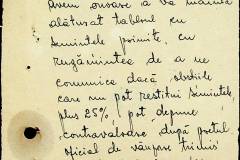 Avem onoare a vă înainta
alăturat tabloul cu
semințele primite, cu
rugămintea de a ne
comunica dacă obștiile
care nu pot restitui semințele,
plus 25%, pot depune
contravaloare după prețul
oficial de vânzare trimis